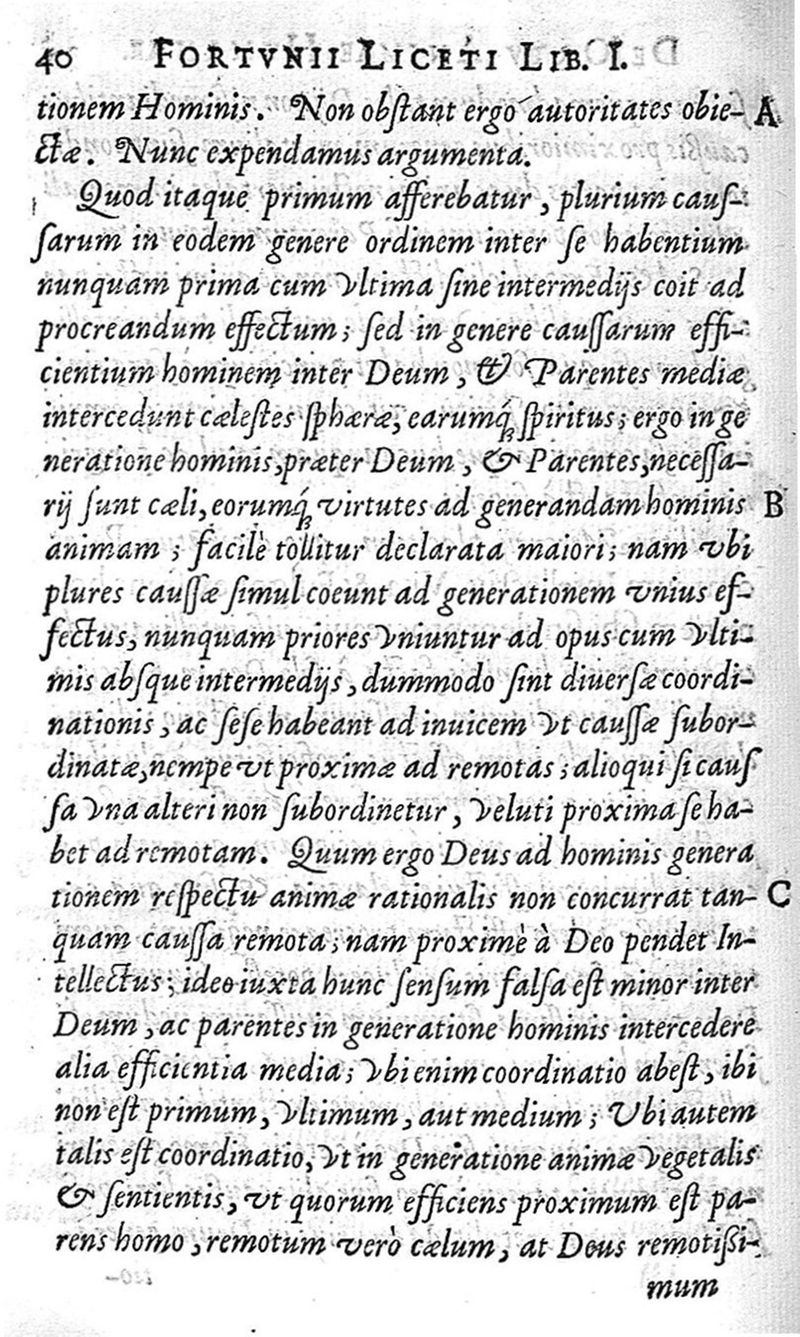 40 FORTVNII LICETI LIB. I.
tionem Hominis. Non obſtant ergo autoritates obie- A
ctæ. Nunc expendamus argumenta.
Quod itaque primum afferebatur, plurium cauſ-
ſarum in eodem genere ordinem inter ſe habentium
nunquam prima cum vltima ſine intermedijs coit ad
procreandum effectum; ſed in genere cauſſarum effi-
cientium hominem inter Deum, & Parentes mediæ
intercedunt cæleſtes ſphæræ, earumq́; ſpiritus; ergo in ge
neratione hominis, præter Deum, & Parentes, neceſſa-
rij ſunt cæli, eorumq́; virtutes ad generandam hominis B
animam; facilè tollitur declarata maiori; nam vbi
plures cauſſæ ſimul coeunt ad generationem vnius ef-
fectus, nunquam priores vniuntur ad opus cum vlti-
mis abſque intermedijs, dummodo ſint diuerſæ coordi-
nationis, ac ſeſe habeant ad inuicem vt cauſſæ ſubor-
dinatæ, nempe vt proximæ ad remotas; alioqui ſi cauſ
ſa vna alteri non ſubordinetur, veluti proxima ſe ha-
bet ad remotam. Quum ergo Deus ad hominis genera
tionem reſpectu animæ rationalis non concurrat tan- C
quam cauſſa remota; nam proximè à Deo pendet In-
tellectus; ideo iuxta hunc ſenſum falſa eſt minor inter
Deum, ac parentes in generatione hominis intercedere
alia efficientia media; vbi enim coordinatio abeſt, ibi
non eſt primum, vltimum, aut medium; Vbi autem
talis eſt coordinatio, vt in generatione animæ vegetalis
& ſentientis, vt quorum efficiens proximum eſt pa-
rens homo, remotum verò cælum, at Deus remotißi-
mum